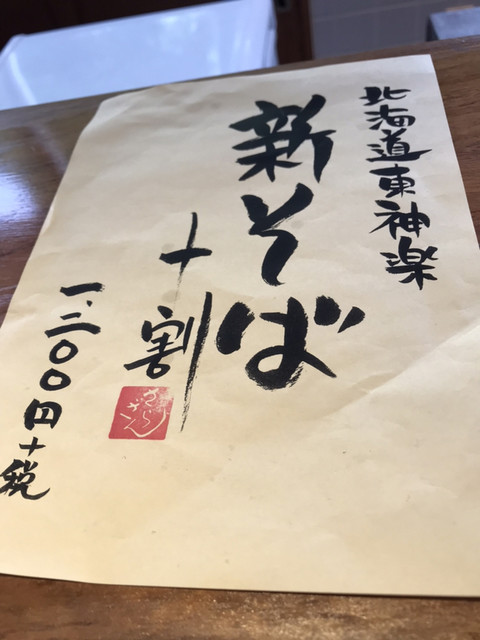 北海道東神楽
新そば
十割
一、三〇〇円+税